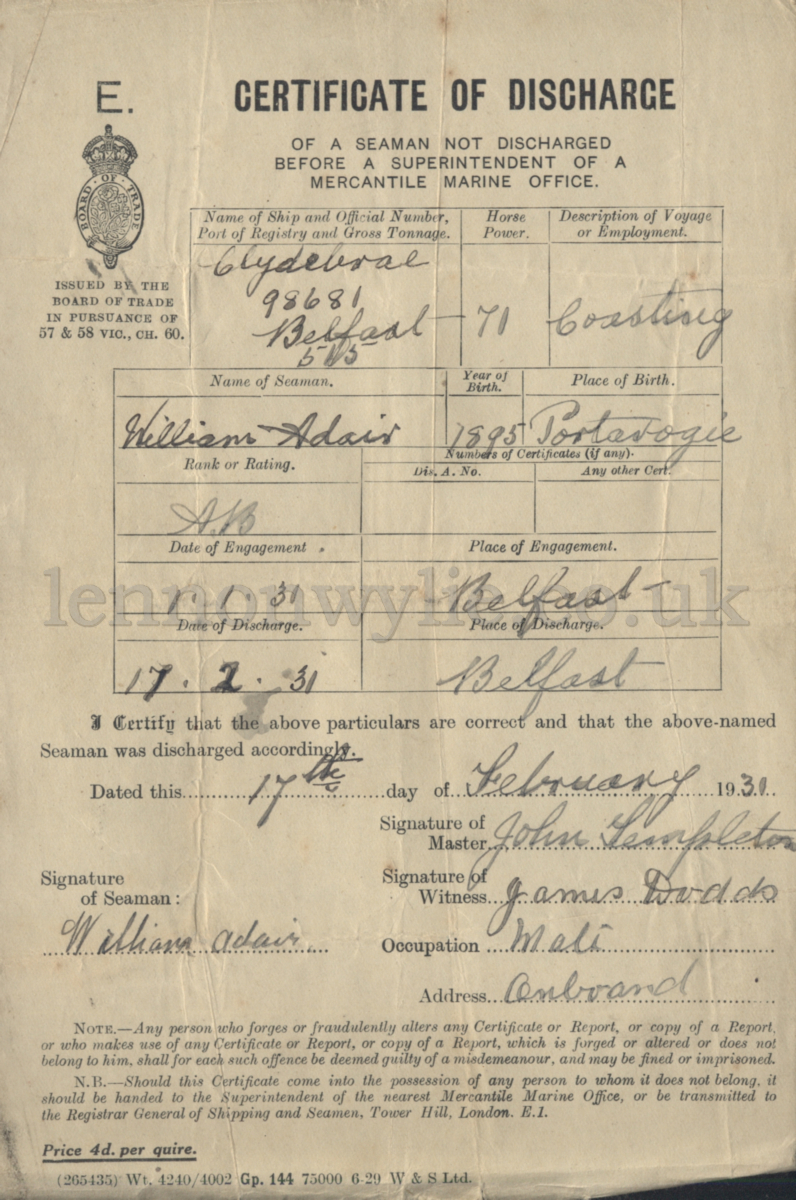 E.
CERTIFICATE OF DISCHARGE
OF A SEAMAN NOT DISCHARGED
BEFORE A SUPERINTENDENT OF A
MERCANTILE MARINE OFFICE.
BOARD OF TRADE
ISSUED BY THE
BOARD OF TRADE
IN PURSUANCE OF
57 & 58 VIC., CH. 60.
Name of Ship and Official Number, Port of Registry and Gross Tonnage.
Horse Power.
Description of Voyage or Employment.
98681
Belfast
71
Coasting
Name of Seaman.
Year of Birth.
Place of Birth.
William Adair
1895
Portavogie
Rank or Rating.
Numbers of Certificates (if any).
Dis. A. No.
Any other Cert.
AB
Date of Engagement
Place of Engagement.
1.1.31
Belfast
Date of Discharge.
Place of Discharge.
17.2.31
Belfast
lennonwylie.co.uk
I Certify that the above particulars are correct and that the above-named
Seaman was discharged accordingly.
Dated this 17th day of February 1931
Signature of Master John Templeton
Signature of Seaman:
William Adair
Signature of Witness James Dodds
Occupation Mate
Address Onboard
NOTE.—Any person who forges or fraudulently alters any Certificate or Report, or copy of a Report,
or who makes use of any Certificate or Report, or copy of a Report, which is forged or altered or does not
belong to him, shall for each such offence be deemed guilty of a misdemeanour, and may be fined or imprisoned.
N.B.—Should this Certificate come into the possession of any person to whom it does not belong, it
should be handed to the Superintendent of the nearest Mercantile Marine Office, or be transmitted to
the Registrar General of Shipping and Seamen, Tower Hill, London. E.1.
Price 4d. per quire.
(265435) Wt. 4240/4002 Gp. 144 75000 6-29 W & S Ltd.